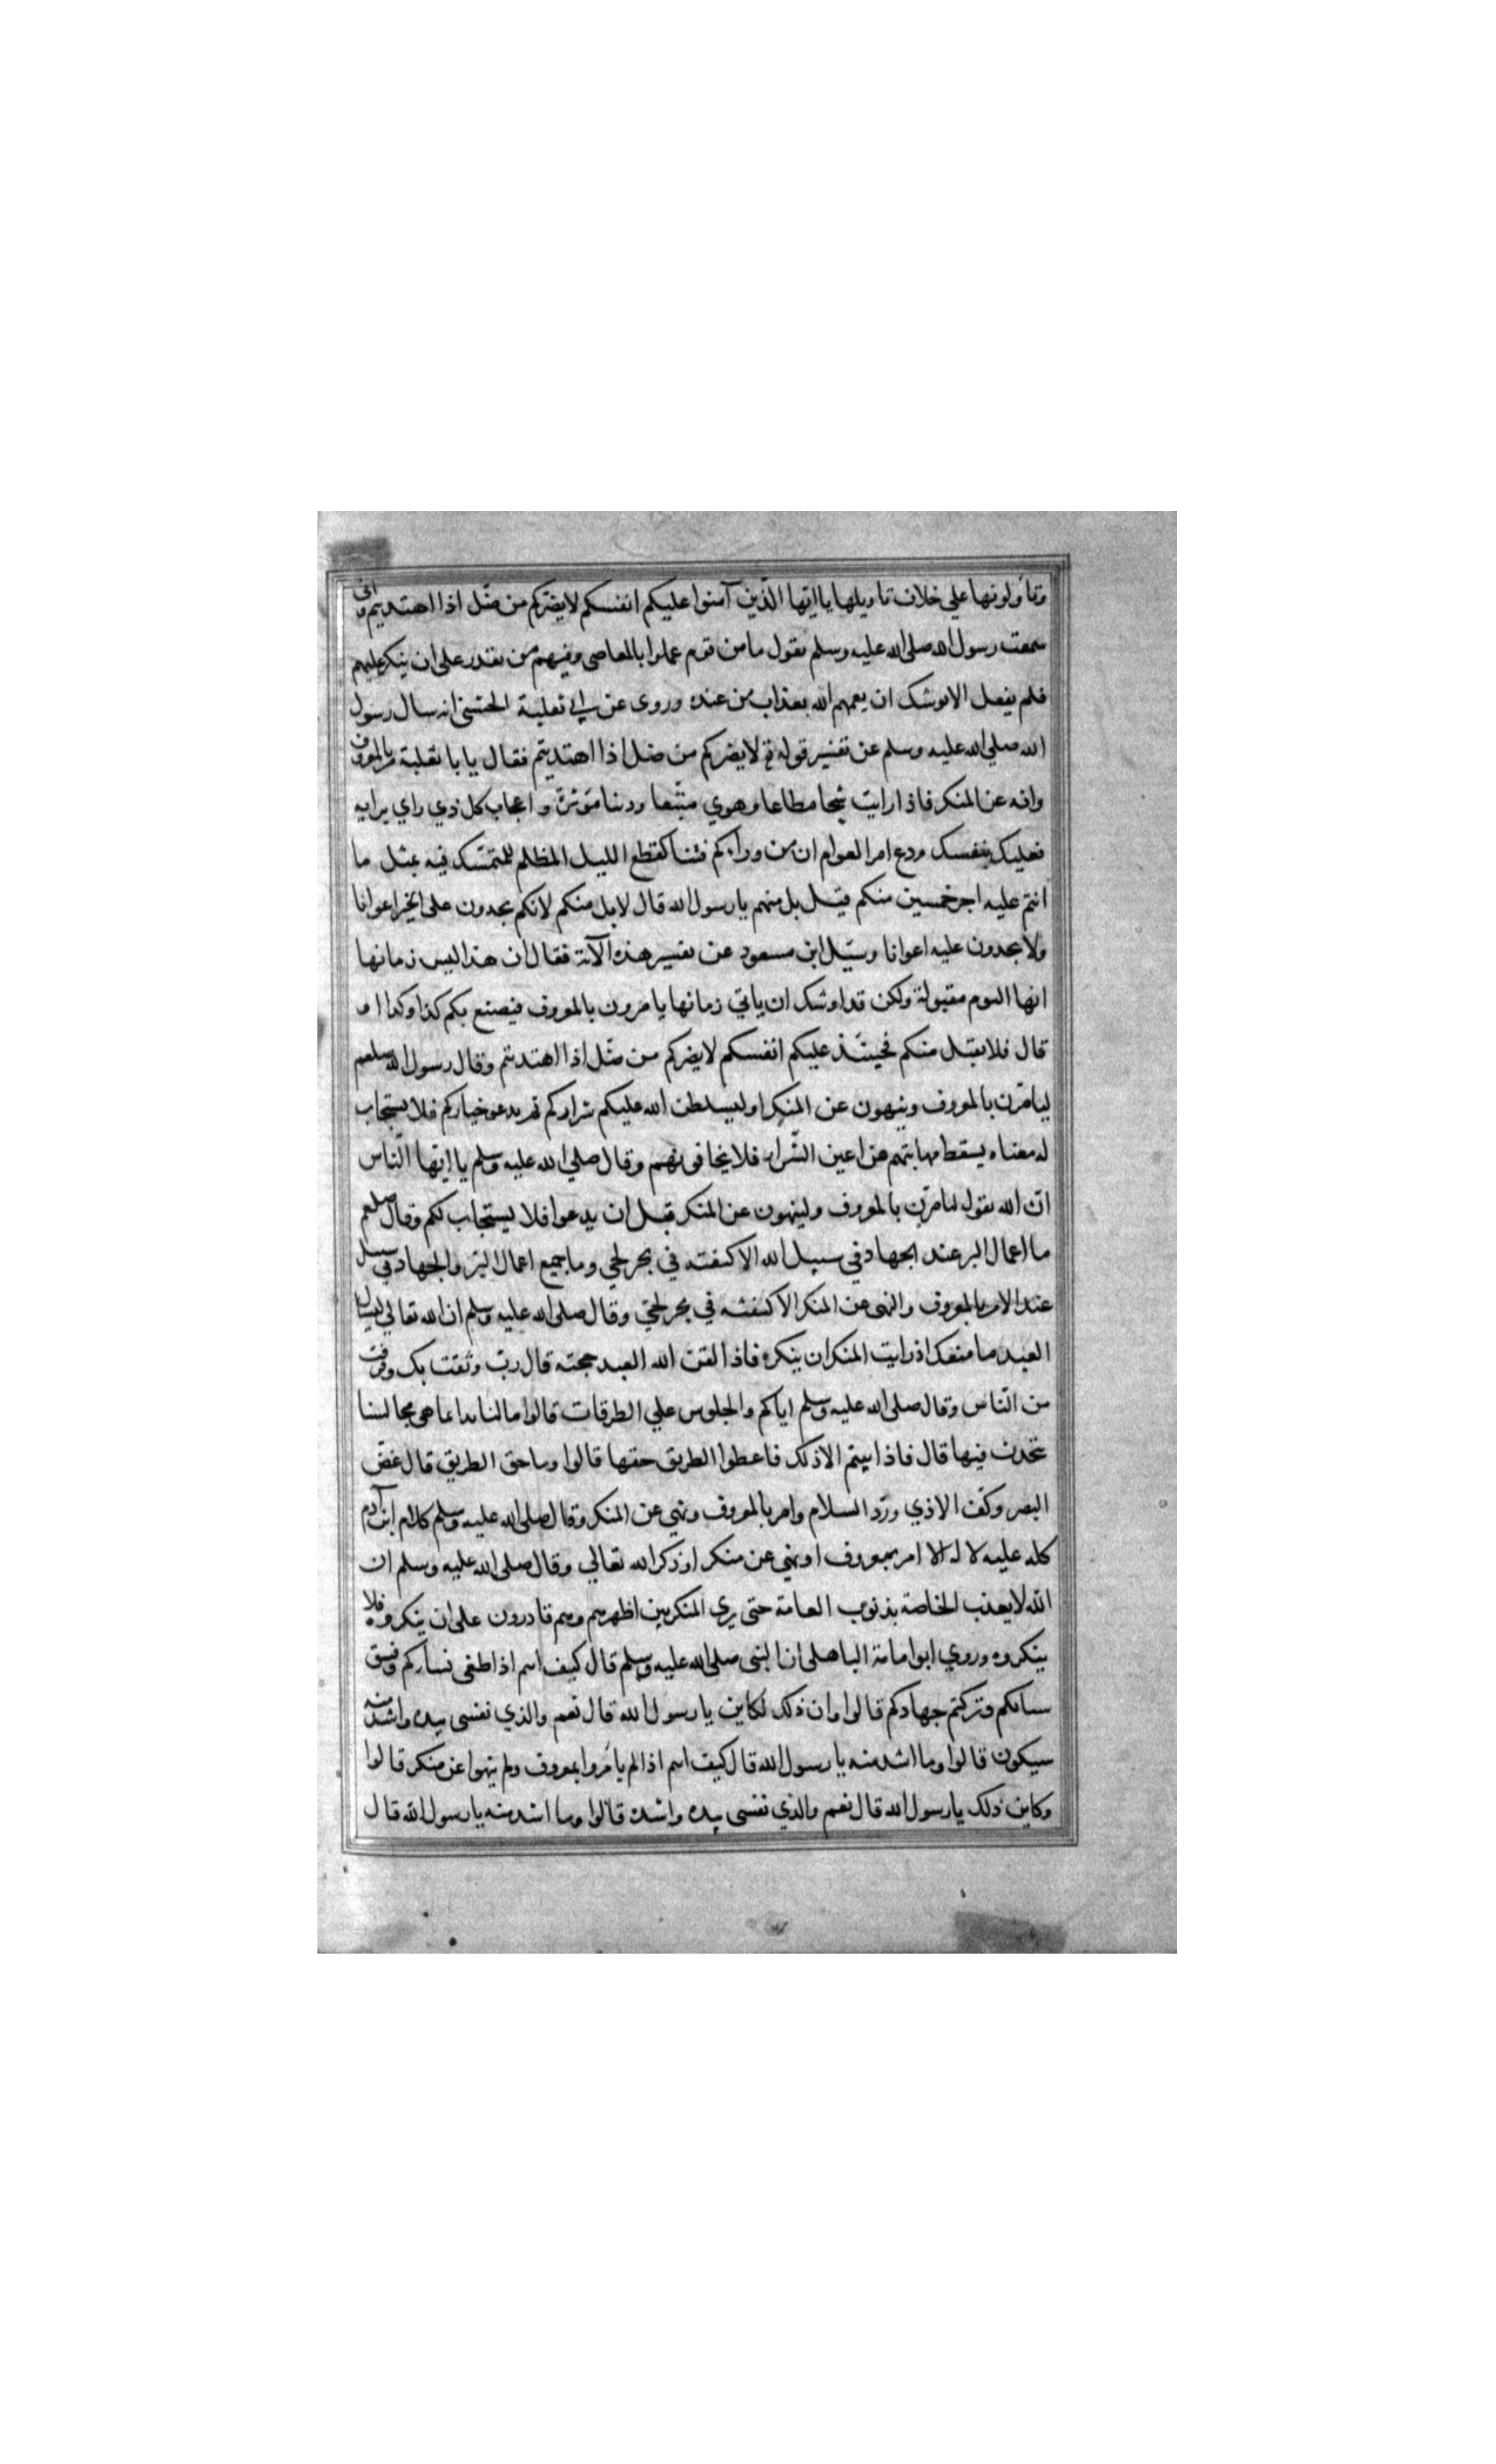 وتاولونها علي خلاف تاويلها يا ايها الذين آمنوا عليكم انفسكم لايضركم من ضل اذا اهتديتم واني
سمعت رسول الله صلى الله عليه وسلم يقول ما من قوم عملوا بالمعاصى وفيهم من يقدر على ان ينكر عليهم
فلم يفعل الا يوشك ان يعمهم الله بعذاب من عنده وروى عن ابي ثعلبة الخشني انه سال رسول
الله صلى الله عليه وسلم عن تفسير قوله تع لايضركم من ضل اذا اهتديتم فقال يا با ثعلبة مر بالمعروف
وانه عن المنكر فاذا رايت شحا مطاعا وهوي متبعا ودنيا موثرة واعجاب كل ذي راي برايه
فعليك بنفسك ودع امر العوام ان من ورآءكم فتنا كقطع الليل المظلم للمتمسك فيه بمثل ما
انتم عليه اجر خمسين منكم قيل بل منهم يا رسول الله قال لا بل منكم لانكم تجدون على الخير اعوانا
ولا يجدون عليه اعوانا وسئل ابن مسعود عن تفسير هذه الآية فقال ان هذا ليس زمانها
انها اليوم مقبولة ولكن قد اوشك ان ياتي زمانها يامرون بالمعروف فيصنع بكم كذا وكذا او
قال فلا يقبل منكم فحينئذ عليكم انفسكم لايضركم من ضل اذا اهتديتم وقال رسول الله صلعم
ليامرن بالمعروف وينهون عن المنكر او ليسلطن الله عليكم شراركم ثم يدعو خياركم فلا يستجاب
له معناه يسقط مهابتهم من اعين الشرار فلا يخافونهم وقال صلي الله عليه وسلم يا ايها الناس
ان الله يقول لتامرن بالمعروف ولينهون عن المنكر قبل ان يدعوا فلا يستجاب لكم وقال صلعم
ما اعمال البر عند الجهاد في سبيل الله الا كنفثه في بحر لجي وما جميع اعمال البر والجهاد في سبيل
عند الامر بالمعروف والنهى عن المنكر الا كنفثه في بحر لجي وقال صلى الله عليه وسلم ان الله تعالي ليسال
العبد ما منعك اذ رايت المنكر ان ينكره فاذا لقن الله العبد حجته قال رب وثقت بك وفرقت
من الناس وقال صلى الله عليه وسلم اياكم والجلوس علي الطرقات قالوا ما لنا بد انما هي مجالسنا
نتحدث فيها قال فاذا ابيتم الا ذلك فاعطوا الطريق حقها قالوا وما حق الطريق قال غض
البصر وكف الاذي ورد السلام وامر بالمعروف ونهي عن المنكر وقال صلى الله عليه وسلم كلام ابن آدم
كله عليه لا له الا امر بمعروف او نهي عن منكر او ذكر الله تعالي وقال صلى الله عليه وسلم ان
الله لايعذب الخاصة بذنوب العامة حتى يري المنكر بين اظهرهم وهم قادرون على ان ينكروه فلا
ينكروه وروي ابو امامة الباهلى ان النبى صلى الله عليه وسلم قال كيف انتم اذا طغى نساركم وفسق
شبابكم وتركتم جهادكم قالوا وان ذلك لكاين يا رسول الله قال نعم والذي نفسى بيده واشد منه
سيكون قالوا وما اشد منه يا رسول الله قال كيف انتم اذا لم يامروا بمعروف ولم ينهوا عن منكر قالوا
وكاين ذلك يا رسول الله قال نعم والذي نفسى بيده واشد قالوا وما اشد منه يا رسول الله قال